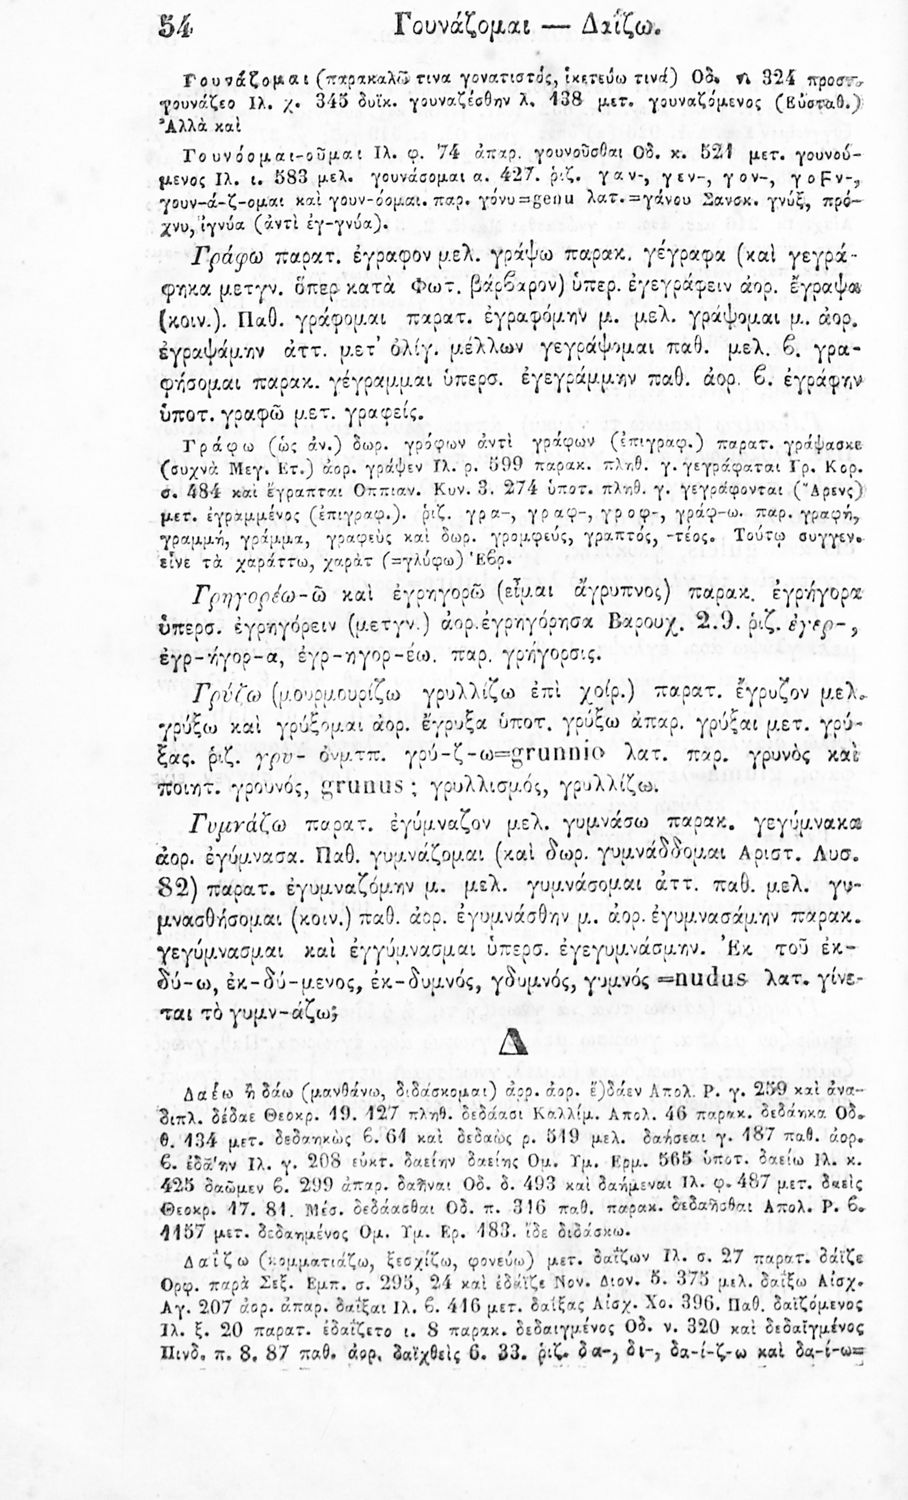 54 Γουνάζομαι — Δαΐζω.
Γουνάζομαι (παρακαλῶ τινα γονατιστός, ἱκετεύω τινά) Οδ. 324 προστ.
γουνάζεο Ιλ. χ. 345 δυϊκ. γουναζέσθην λ. 138 μετ. γουναζόμενος (Εὐσταθ.)
Ἀλλὰ καὶ
Γουνόομαι-οῦμαι Ιλ. φ. 74 ἀπαρ. γουνοῦσθαι Οδ. κ. 521 μετ. γουνού-
μενος Ιλ. ι. 583 μελ. γουνάσομαι α. 427. ῥιζ. γαν-, γεν-, γον-, γοϜν-,
γουν-ά-ζ-ομαι καὶ γουν-όομαι. παρ. γόνυ=genu λατ.=γάνου Σανσκ. γνύξ, πρό-
χνυ, ἰγνύα (ἀντὶ ἐγ-γνύα).
Γράφω παρατ. ἔγραφον μελ. γράψω παρακ. γέγραφα (καὶ γεγρά-
φηκα μετγν. ὅπερ κατὰ Φωτ. βάρβαρον) ὑπερ. ἐγεγράφειν ἀορ. ἔγραψα
(κοιν.). Παθ. γράφομαι παρατ. ἐγραφόμην μ. μελ. γράψομαι μ. ἀορ.
ἐγραψάμην ἀττ. μετ' ὀλίγ. μέλλων γεγράψομαι παθ. μελ. β. γρα-
φήσομαι παρακ. γέγραμμαι ὑπερσ. ἐγεγράμμην παθ. ἀορ. β. ἐγράφην
ὑποτ. γραφῶ μετ. γραφείς.
Γράφω (ὡς ἀν.) δωρ. γρόφων ἀντὶ γράφων (ἐπιγραφ.) παρατ. γράψασκε
(συχνὰ Μεγ. Ετ.) ἀορ. γράψεν Ιλ. ρ. 599 παρακ. πληθ. γ. γεγράφαται Γρ. Κορ.
σ. 484 καὶ ἔγραπται Οππιαν. Κυν. 3. 274 ὑποτ. πληθ. γ. γεγράφονται (Ἄρενς)
μετ. ἐγραμμένος (ἐπιγραφ.). ῥιζ. γρα-, γραφ-, γροφ-, γράφ-ω. παρ. γραφή,
γραμμή, γράμμα, γραφεὺς καὶ δωρ. γρομφεύς, γραπτός, -τέος. Τούτῳ συγγεν.
εἶνε τὰ χαράττω, χαρὰτ (=γλύφω) Ἑβρ.
Γρηγορέω-ῶ καὶ ἐγρηγορῶ (εἶμαι ἄγρυπνος) παρακ. ἐγρήγορα
ὑπερσ. ἐγρηγόρειν (μετγν.) ἀορ. ἐγρηγόρησα Βαρουχ. 2.9. ῥιζ. ἐγερ-,
ἐγρ-ήγορ-α, ἐγρ-ηγορ-έω. παρ. γρήγορσις.
Γρύζω (μουρμουρίζω γρυλλίζω ἐπὶ χοίρ.) παρατ. ἔγρυζον μελ.
γρύξω καὶ γρύξομαι ἀορ. ἔγρυξα ὑποτ. γρύξω ἀπαρ. γρύξαι μετ. γρύ-
ξας. ῥιζ. γρυ- ὀνμτπ. γρύ-ζ-ω=grunnio λατ. παρ. γρυνὸς καὶ
ποιητ. γρουνός, grunus; γρυλλισμός, γρυλλίζω.
Γυμνάζω παρατ. ἐγύμναζον μελ. γυμνάσω παρακ. γεγύμνακα
ἀορ. ἐγύμνασα. Παθ. γυμνάζομαι (καὶ δωρ. γυμνάδδομαι Αριστ. Λυσ.
82) παρατ. ἐγυμναζόμην μ. μελ. γυμνάσομαι ἀττ. παθ. μελ. γυ-
μνασθήσομαι (κοιν.) παθ. ἀορ. ἐγυμνάσθην μ. ἀορ. ἐγυμνασάμην παρακ.
γεγύμνασμαι καὶ ἐγγύμνασμαι ὑπερσ. ἐγεγυμνάσμην. Ἐκ τοῦ ἐκ-
δύ-ω, ἐκ-δύ-μενος, ἐκ-δυμνός, γδυμνός, γυμνός =nudus λατ. γίνε-
ται τὸ γυμν-άζω;
Δ
Δαέω ἢ δάω (μανθάνω, διδάσκομαι) ἀορ. ἀορ. ἔ)δάεν Απολ. Ρ. γ. 259 καὶ ἀνα-
διπλ. δέδαε Θεοκρ. 19. 127 πληθ. δεδάασι Καλλίμ. Απολ. 46 παρακ. δεδάηκα Οδ.
θ. 134 μετ. δεδαηκὼς β. 61 καὶ δεδαὼς ρ. 519 μελ. δαήσεαι γ. 187 παθ. ἀορ.
β. ἐδάην Ιλ. γ. 208 εὐκτ. δαείην δαείης Ομ. Υμ. Ερμ. 565 ὑποτ. δαείω Ιλ. κ.
425 δαῶμεν β. 299 ἀπαρ. δαῆναι Οδ. δ. 493 καὶ δαήμεναι Ιλ. φ. 487 μετ. δαεὶς
Θεοκρ. 17. 81. Μέσ. δεδάασθαι Οδ. π. 316 παθ. παρακ. δεδαῆσθαι Απολ. Ρ. β.
1157 μετ. δεδαημένος Ομ. Υμ. Ερ. 483. ἴδε διδάσκω.
Δαΐζω (κομματιάζω, ξεσχίζω, φονεύω) μετ. δαΐζων Ιλ. σ. 27 παρατ. δάϊζε
Ορφ. παρὰ Σεξ. Εμπ. σ. 295, 24 καὶ ἐδάϊζε Νον. Διον. 5. 375 μελ. δαΐξω Αἰσχ.
Αγ. 207 ἀορ. ἀπαρ. δαΐξαι Ιλ. β. 416 μετ. δαΐξας Αἰσχ. Χο. 396. Παθ. δαϊζόμενος
Ιλ. ξ. 20 παρατ. ἐδαΐζετο ι. 8 παρακ. δεδαιγμένος Οδ. ν. 320 καὶ δεδαϊγμένος
Πινδ. π. 8. 87 παθ. ἀορ. δαϊχθεὶς 6. 33. ῥιζ. δα-, δι-, δα-ί-ζ-ω καὶ δα-ί-ω=